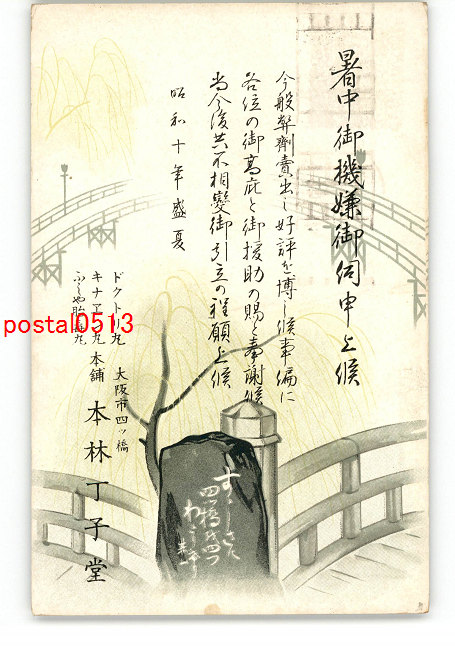 暑中御機嫌御伺申上候
今般弊剤賣出し好評を博し候事偏に
各位の御高庇と御援助の賜と奉謝候
尚今後共不相變御引立の程願上候
昭和十年盛夏
ドクトリ丸
キナヱ 丸本舗
ふじや 丸
大阪市四ッ橋
本林丁子堂
すゞしさに
四ツ橋を四つ
わたりけり
来山
postal0513